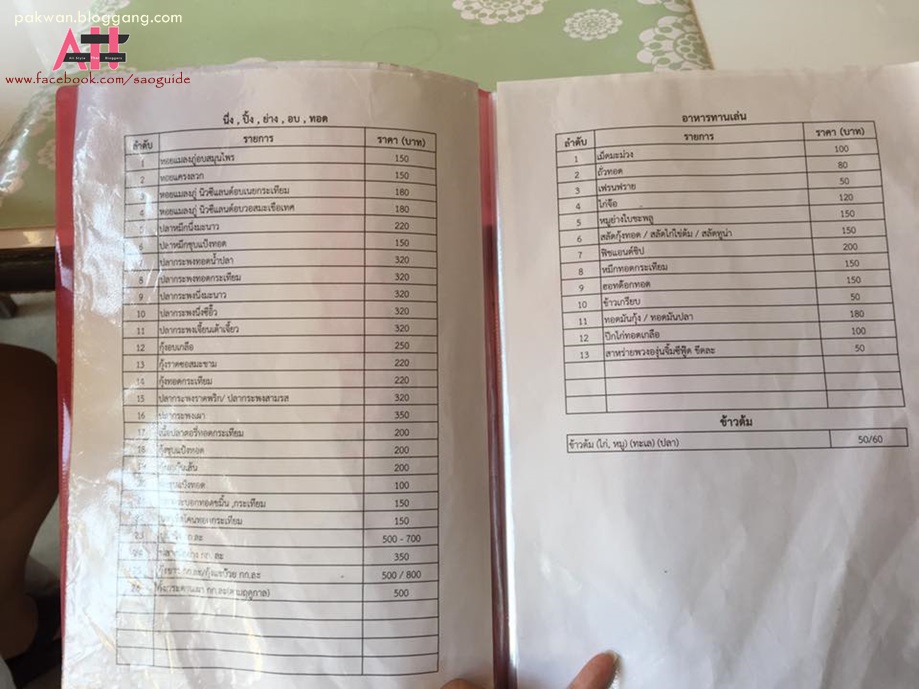 pakwan.bloggang.com
www.facebook.com/saoguide
นึ่ง , ปิ้ง , ย่าง , อบ , ทอด
ลำดับ รายการ ราคา (บาท)
1 หอยแมลงภู่อบสมุนไพร 150
2 หอยแครงลวก 150
3 หอยแมลงภู่ นิวซีแลนด์อบเนยกระเทียม 180
4 หอยแมลงภู่ นิวซีแลนด์อบซอสมะเขือเทศ 180
5 ปลาหมึกนึ่งมะนาว 220
6 ปลาหมึกชุบแป้งทอด 150
ปลากระพงทอดน้ำปลา 320
8 ปลากระพงทอดกระเทียม 320
9 ปลากระพงนึ่งมะนาว 320
10 ปลากระพงนึ่งซีอิ๊ว 320
11 ปลากระพงเจี๋ยนเต้าเจี้ยว 320
12 กุ้งอบเกลือ 250
13 กุ้งราดซอสมะขาม 220
14 กุ้งทอดกระเทียม 220
15 ปลากระพงราดพริก/ ปลากระพงสามรส 320
16 ปลากระพงเผา 350
17 เนื้อปลาดอรี่ทอดกระเทียม 200
18 กุ้งชุบแป้งทอด 200
กุ้งอบวุ้นเส้น 200
แป้งทอด 100
ทอดขมิ้น ,กระเทียม 150
กระเทียม 150
23 กก.ละ 500 - 700
กก. ละ 350
กก.ละ 500 / 800
กก.ละ(ตามฤดูกาล) 500
อาหารทานเล่น
ลำดับ รายการ ราคา (บาท)
1 เม็ดมะม่วง 100
2 ถั่วทอด 80
3 เฟรนฟราย 50
4 ไก่จ๊อ 120
5 หมูย่างใบชะพลู 150
6 สลัดกุ้งทอด / สลัดไก่ไข่ต้ม / สลัดทูน่า 150
7 ฟิชแอนด์ชิป 200
8 หมึกทอดกระเทียม 150
9 ฮอทด็อกทอด 150
10 ข้าวเกรียบ 50
11 ทอดมันกุ้ง / ทอดมันปลา 180
12 ปีกไก่ทอดเกลือ 100
13 สาหร่ายพวงองุ่นจิ้มซีฟู๊ด ขีดละ 50
ข้าวต้ม
ข้าวต้ม (ไก่, หมู) (ทะเล) (ปลา) 50/60